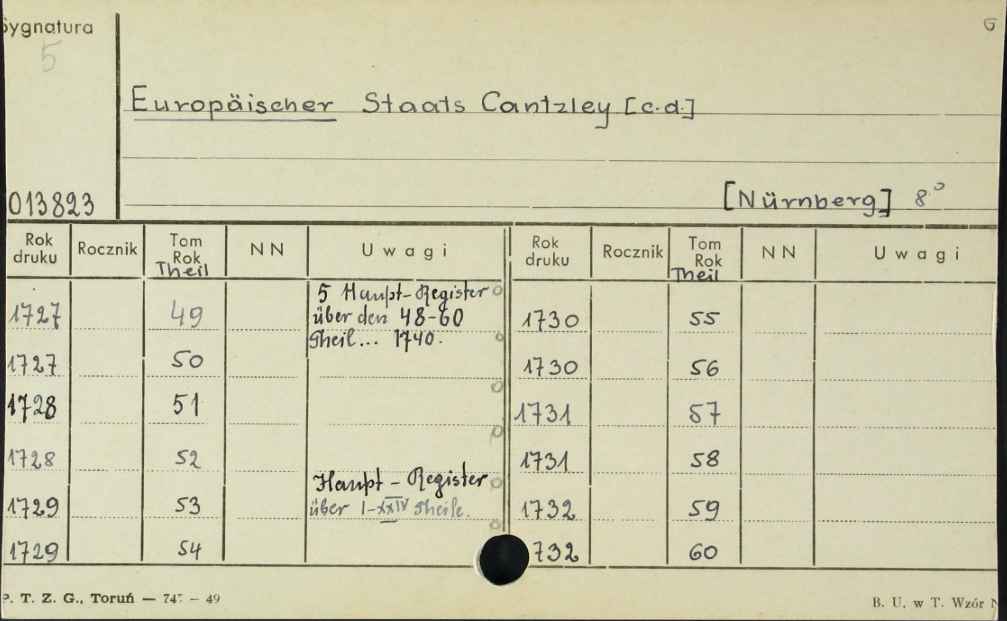 Sygnatura
5
6
Europäischer Staats Cantzley [c.d.]
013823
[Nürnberg] 8°
Rok druku Rocznik Tom Rok Theil NN Uwagi Rok druku Rocznik Tom Rok Theil NN Uwagi
1727 49 5 Haupt-Register 1730 55
über den 48-60
Theil... 1740.
1727 50 1730 56
1728 51 1731 57
1728 52 1731 58
Haupt - Register
1729 53 über I-XXIV Theile. 1732 59
1729 54 732 60
P. T. Z. G., Toruń — 747 - 49
B. U. w T. Wzór